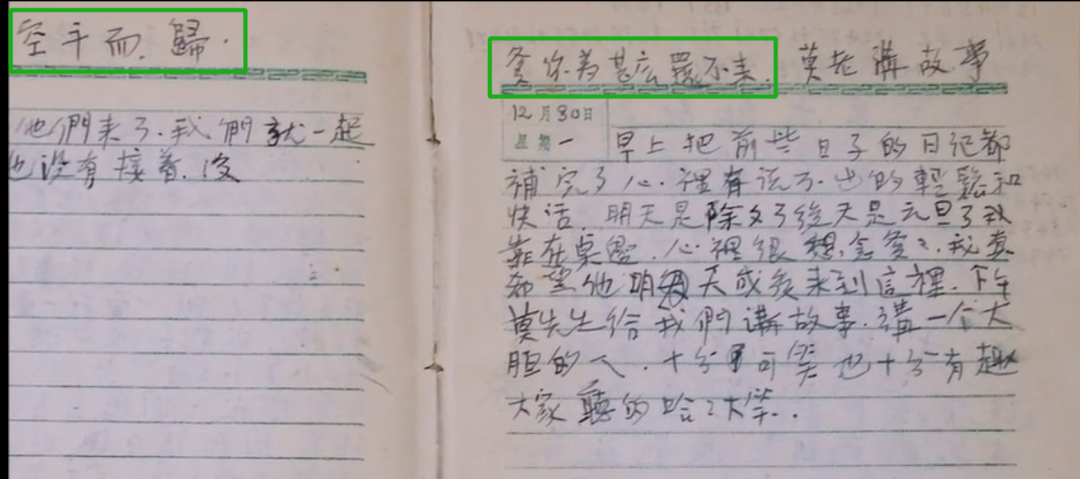 空手而歸.
他們来了.我們就一起
也没有接着.後
爹你为甚広還不来. 莫老講故事
12月30日
星期一
早上把前些日子的日记都
補完了心.裡有说不.出的輕鬆和
快活.明天是除夕了後天是元旦了我
靠在桌.心裡很想念爹々.我真
希望他明天或後来到這裡.下午
莫先生给我們講故事.講一个大
胆的人.十分可笑也十分有趣
大家聽的哈々大笑..